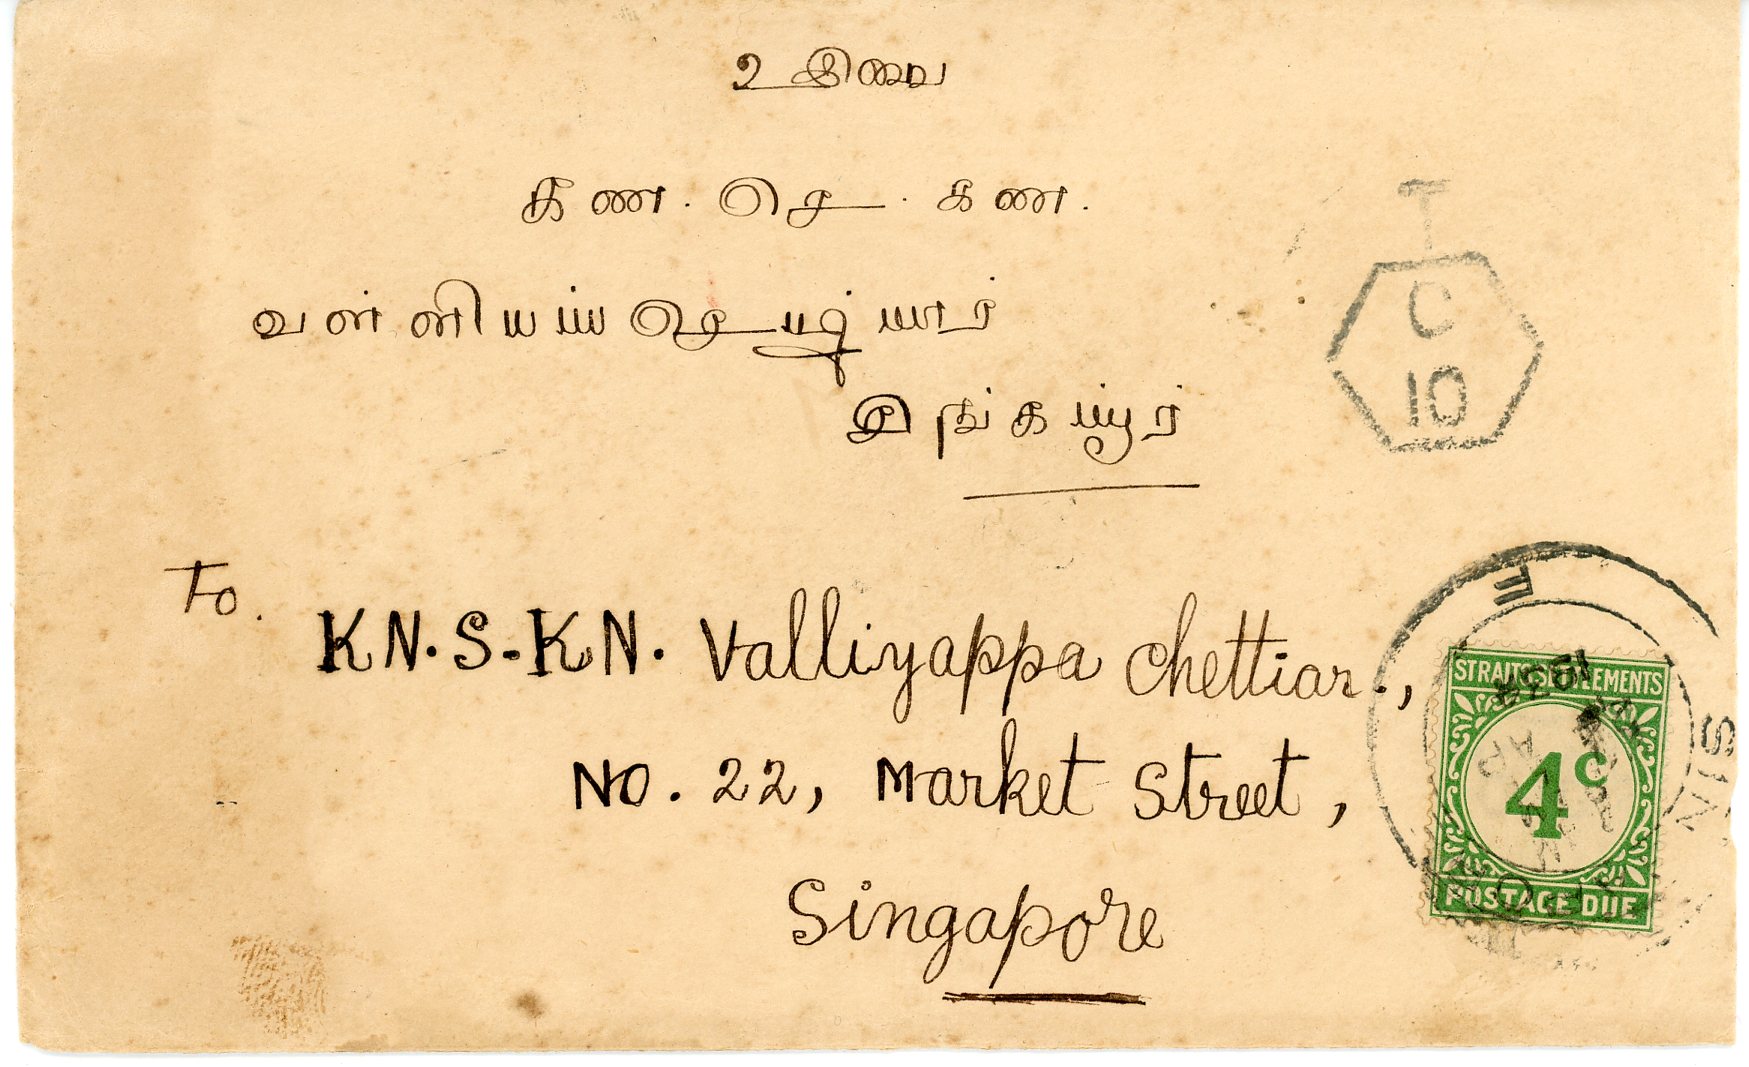 உ சிவமயம்
கண . செ . கண .
வள்ளியப்ப செட்டியார்
சிங்கப்பூர்
T
C
10
To.
KN.S.KN. Valliyappa Chettiar.,
No. 22, Market Street,
Singapore
STRAITS SETTLEMENTS
4c
POSTAGE DUE